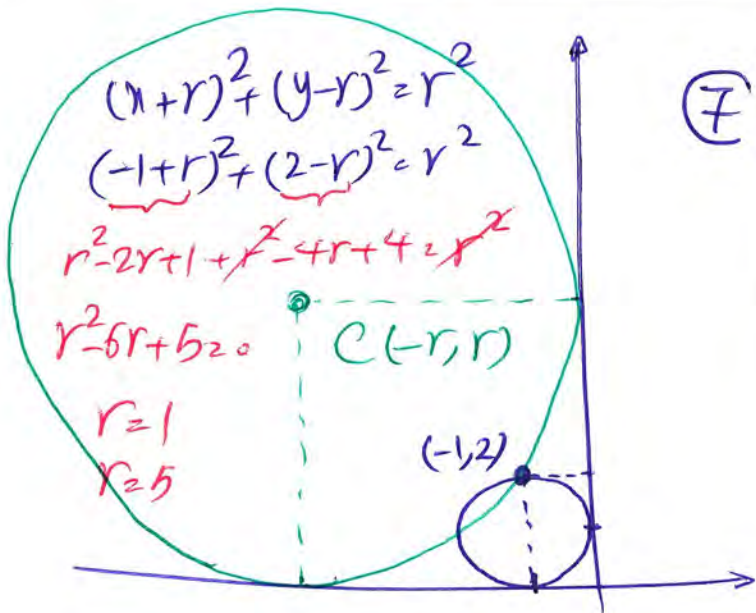 (x+r)²+(y-r)²=r²
⑦
(-1+r)²+(2-r)²=r²
r²-2r+1+r²-4r+4=r²
r²-6r+5=0
C(-r,r)
r=1
(-1,2)
r=5